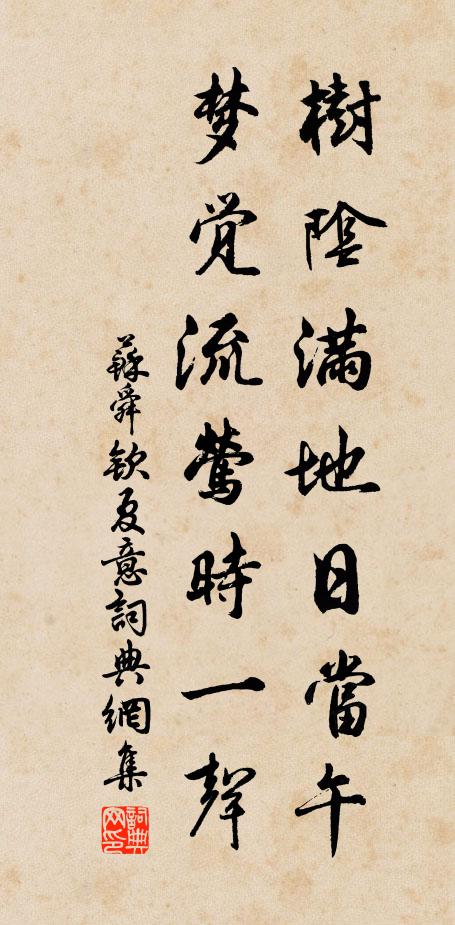 樹陰满地日當午
梦觉流莺時一聲
蘇舜欽夏意詞典網集
詞典网印